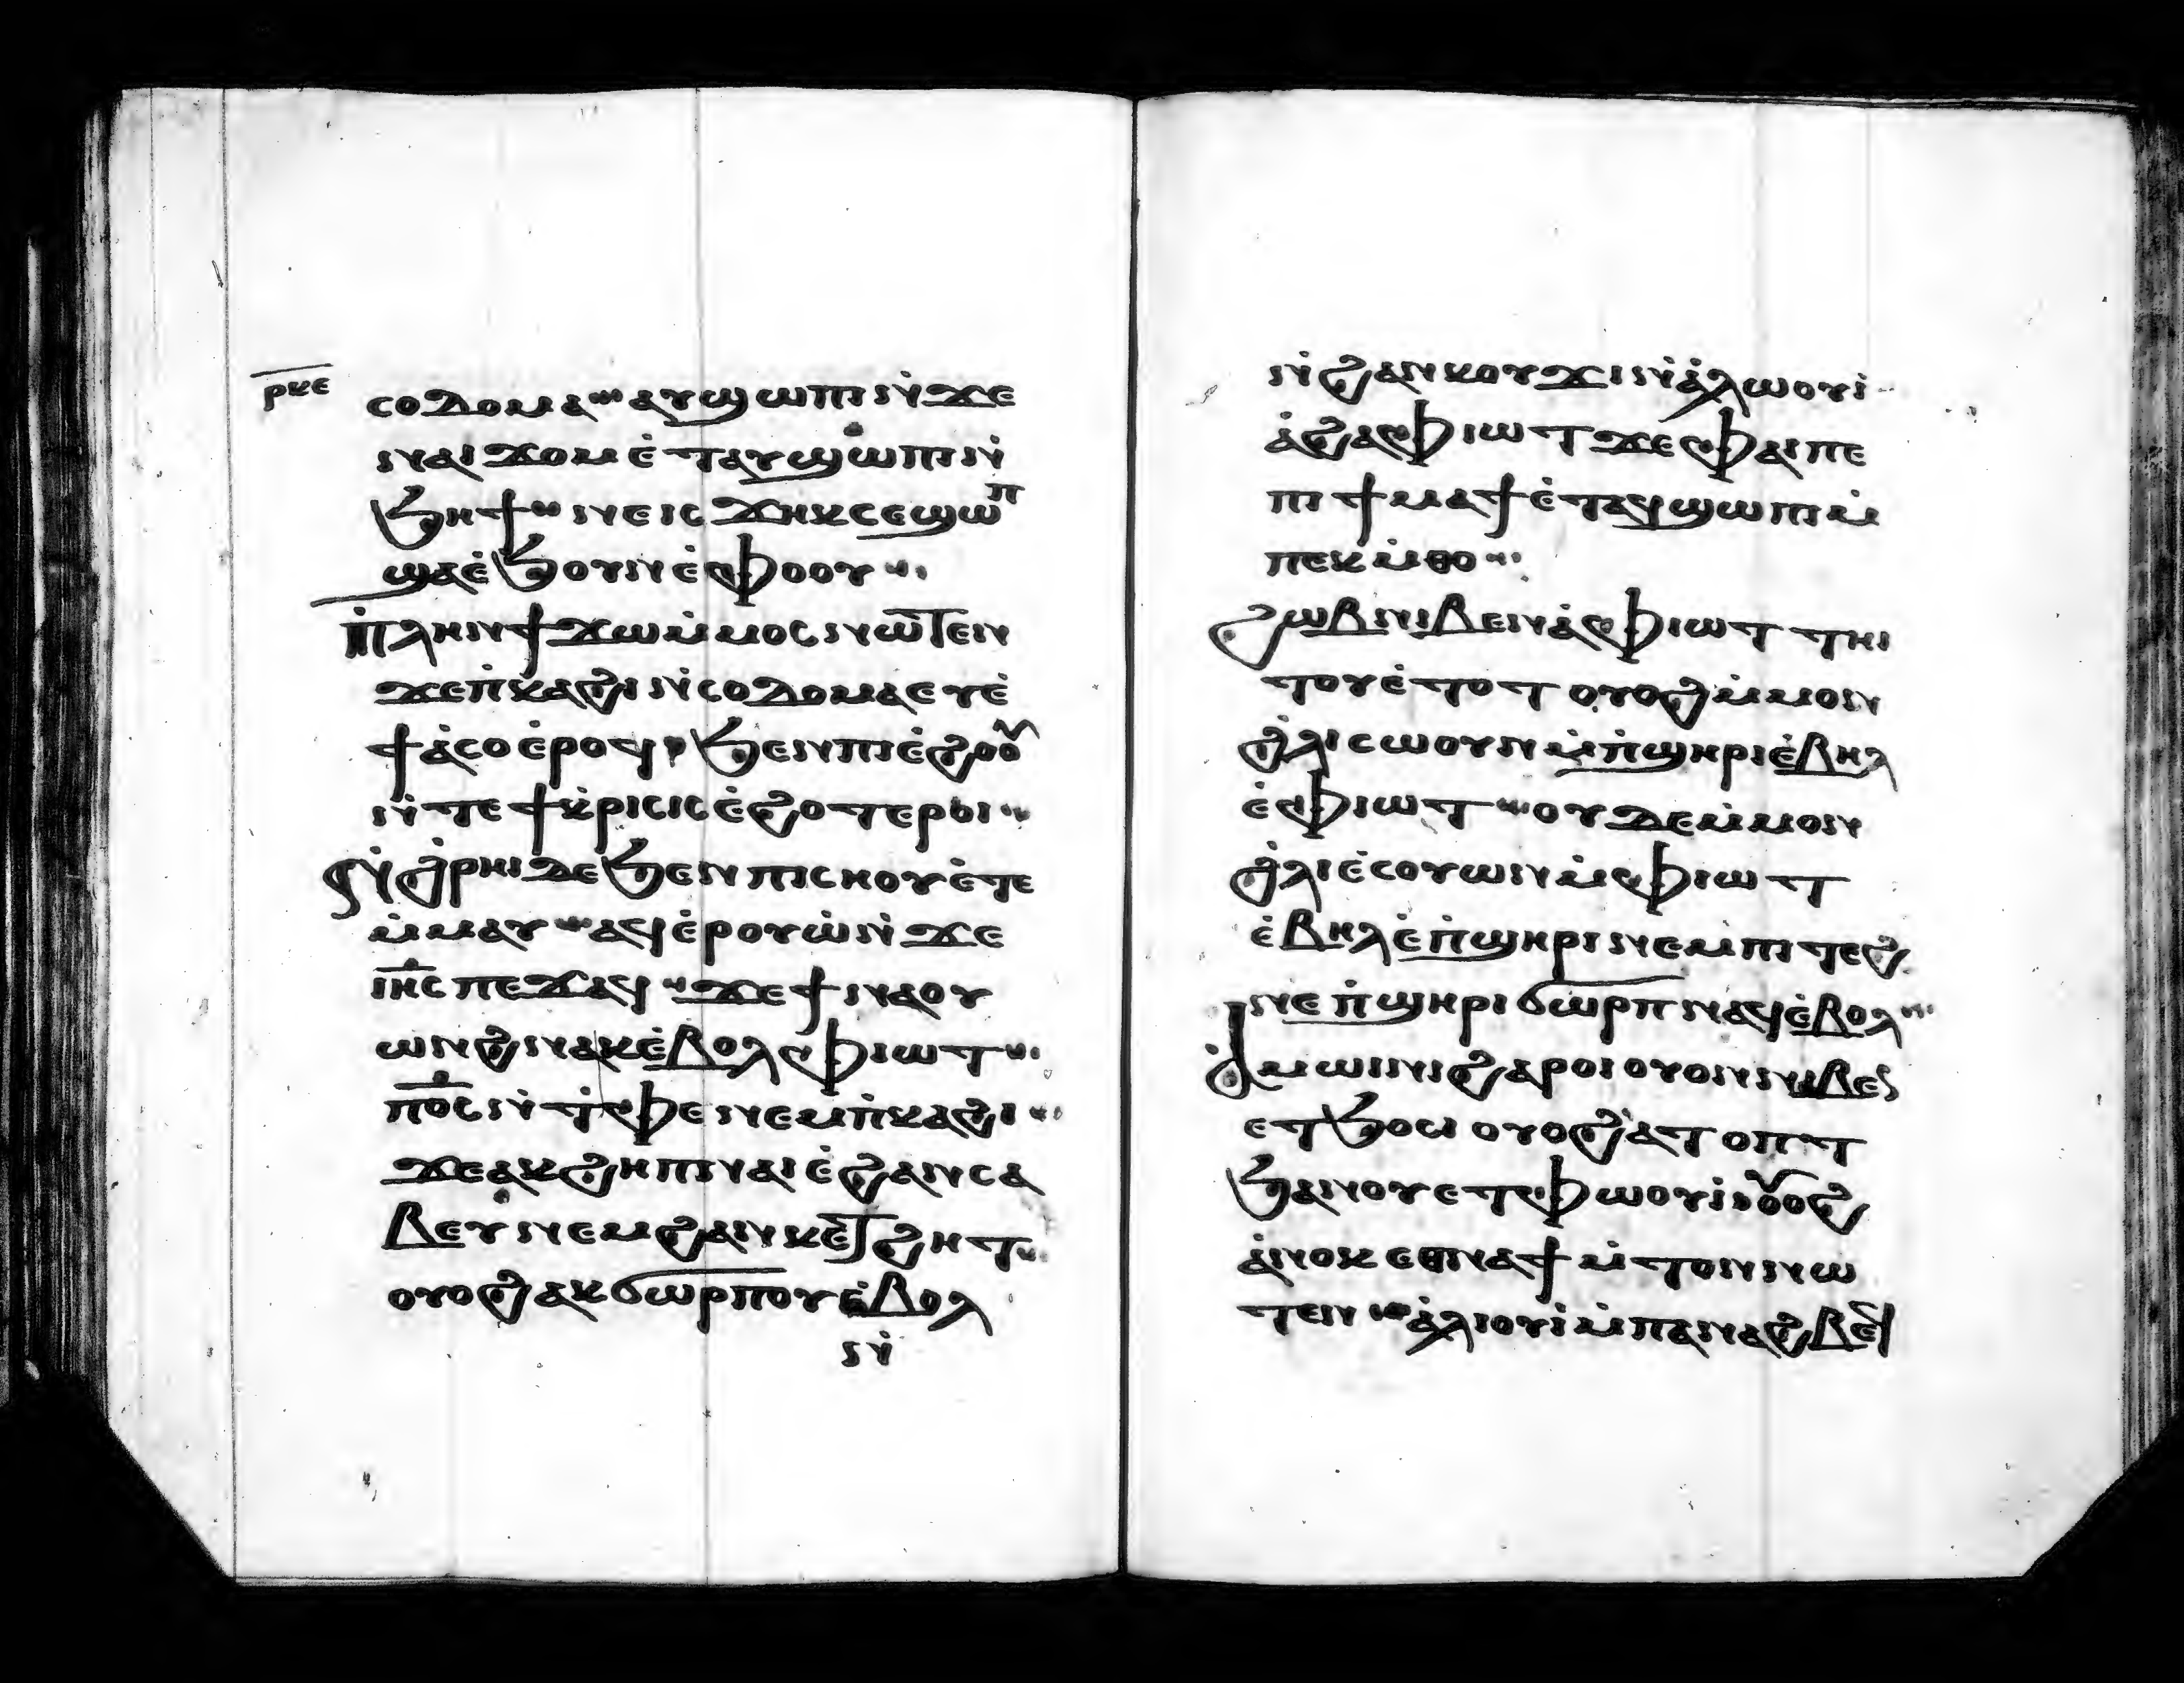 ⲣⲕⲉ
ⲥⲟⲇⲟⲙⲁ ⲁⲩϣⲱⲡⲓ ⲛ̇ϫⲉ
ⲛⲁⲓϫⲟⲙ ⲉ̇ⲧⲁⲩϣⲱⲡⲓ ⲛ̇
ϧⲏϯ ⲛⲉ ⲓⲥϫⲏⲕ ⲥⲉϣⲱⲡ
ϣⲁ ⲉ̇ϧⲟⲩⲛ ⲉ̇ⲫⲟⲟⲩ
ⲡⲗⲏⲛ ϯϫⲱ ⲙ̇ⲙⲟⲥ ⲛⲱⲧⲉⲛ
ϫⲉ ⲡ̇ⲕⲁϩⲓ ⲛ̇ⲥⲟⲇⲟⲙⲁ ⲉⲩⲉ̇
ϯⲁ̇ⲥⲟ ⲉ̇ⲣⲟϥ ϧⲉⲛ ⲡⲓⲉ̇ϩⲟⲟ
ⲛ̇ⲧⲉ ϯⲕ̇ⲣⲓⲥⲓⲥ ⲉ̇ϩⲟⲧⲉⲣⲟⲓ
ⲛ̇ϩ̇ⲣⲏⲓ ⲇⲉ ϧⲉⲛ ⲡⲓⲥⲏⲟⲩ ⲉ̇ⲧⲉ
ⲙ̇ⲙⲁⲩ ⲁϥⲉ̇ⲣⲟⲩⲱ̇ ⲛ̇ϫⲉ
ⲓⲏⲥ ⲡⲉϫⲁϥ ϫⲉ ϯⲛⲁⲟⲩ
ⲱⲛϩ ⲛⲁⲕ ⲉ̇ⲃⲟⲗ ⲫⲓⲱⲧ
ⲡⲟⲥ ⲛ̇ⲧ̇ⲫⲉ ⲛⲉⲙ ⲡ̇ⲕⲁϩⲓ
ϫⲉ ⲁⲕϩⲏⲡ ⲛⲁⲓ ⲉ̇ϩⲁⲛⲥⲁ
ⲃⲉⲩ ⲛⲉⲙ ϩⲁⲛⲕⲉⲧϩⲏⲧ
ⲟⲩⲟϩ ⲁⲕϭⲱⲣⲡⲟⲩ ⲉ̇ⲃⲟⲗ
ⲛ̇
ⲛ̇ϩⲁⲛⲕⲟⲩϫⲓ ⲛ̇ⲁ̇ⲗⲱⲟⲩⲓ̇
ⲁ̇ϩⲁ ⲫⲓⲱⲧ ϫⲉ ⲫⲁⲓ ⲡⲉ
ⲡⲓϯⲙⲁϯ ⲉ̇ⲧⲁϥϣⲱⲡⲓ ⲙ̇
ⲡⲉⲕⲙ̇ⲑⲟ
ϩⲱⲃ ⲛⲓⲃⲉⲛ ⲁ̇ⲫⲓⲱⲧ ⲧⲏⲓ
ⲧⲟⲩ ⲉ̇ⲧⲟⲧ ⲟⲩⲟϩ ⲙ̇ⲙⲟⲛ
ϩ̇ⲗⲓ ⲥⲱⲟⲩⲛ ⲙ̇ⲡ̇ϣⲏⲣⲓ ⲉ̇ⲃⲏⲗ
ⲉ̇ⲫⲓⲱⲧ ⲟⲩⲇⲉ ⲙ̇ⲙⲟⲛ
ϩ̇ⲗⲓ ⲉ̇ⲥⲟⲩⲱⲛ ⲙ̇ⲫⲓⲱⲧ
ⲉ̇ⲃⲏⲗ ⲉ̇ⲡ̇ϣⲏⲣⲓ ⲛⲉⲙ ⲡⲓ ⲧⲉϩ
ⲛⲉ ⲡ̇ϣⲏⲣⲓ ϭⲱⲣⲡ ⲛⲁϥ ⲉ̇ⲃⲟⲗ
ⲁ̇ⲙⲱⲓⲛⲓ ϩⲁⲣⲟⲓ ⲟⲩⲟⲛ ⲛⲓⲃⲉⲛ
ⲉⲧϧⲟⲥⲓ ⲟⲩⲟϩ ⲁ̇ⲧⲟⲡⲧ
ϧⲁⲛⲟⲩⲉⲧⲫⲱⲟⲩⲓ̇ ⲟⲟϩ
ⲁ̇ⲛⲟⲕ ⲉⲑⲛⲁϯ ⲙ̇ⲧⲟⲛ ⲛⲱ
ⲧⲉⲛ ⲁ̇ⲗⲓⲟⲩⲓ̇ ⲙ̇ⲡⲁⲛⲁϩⲃⲉϥ